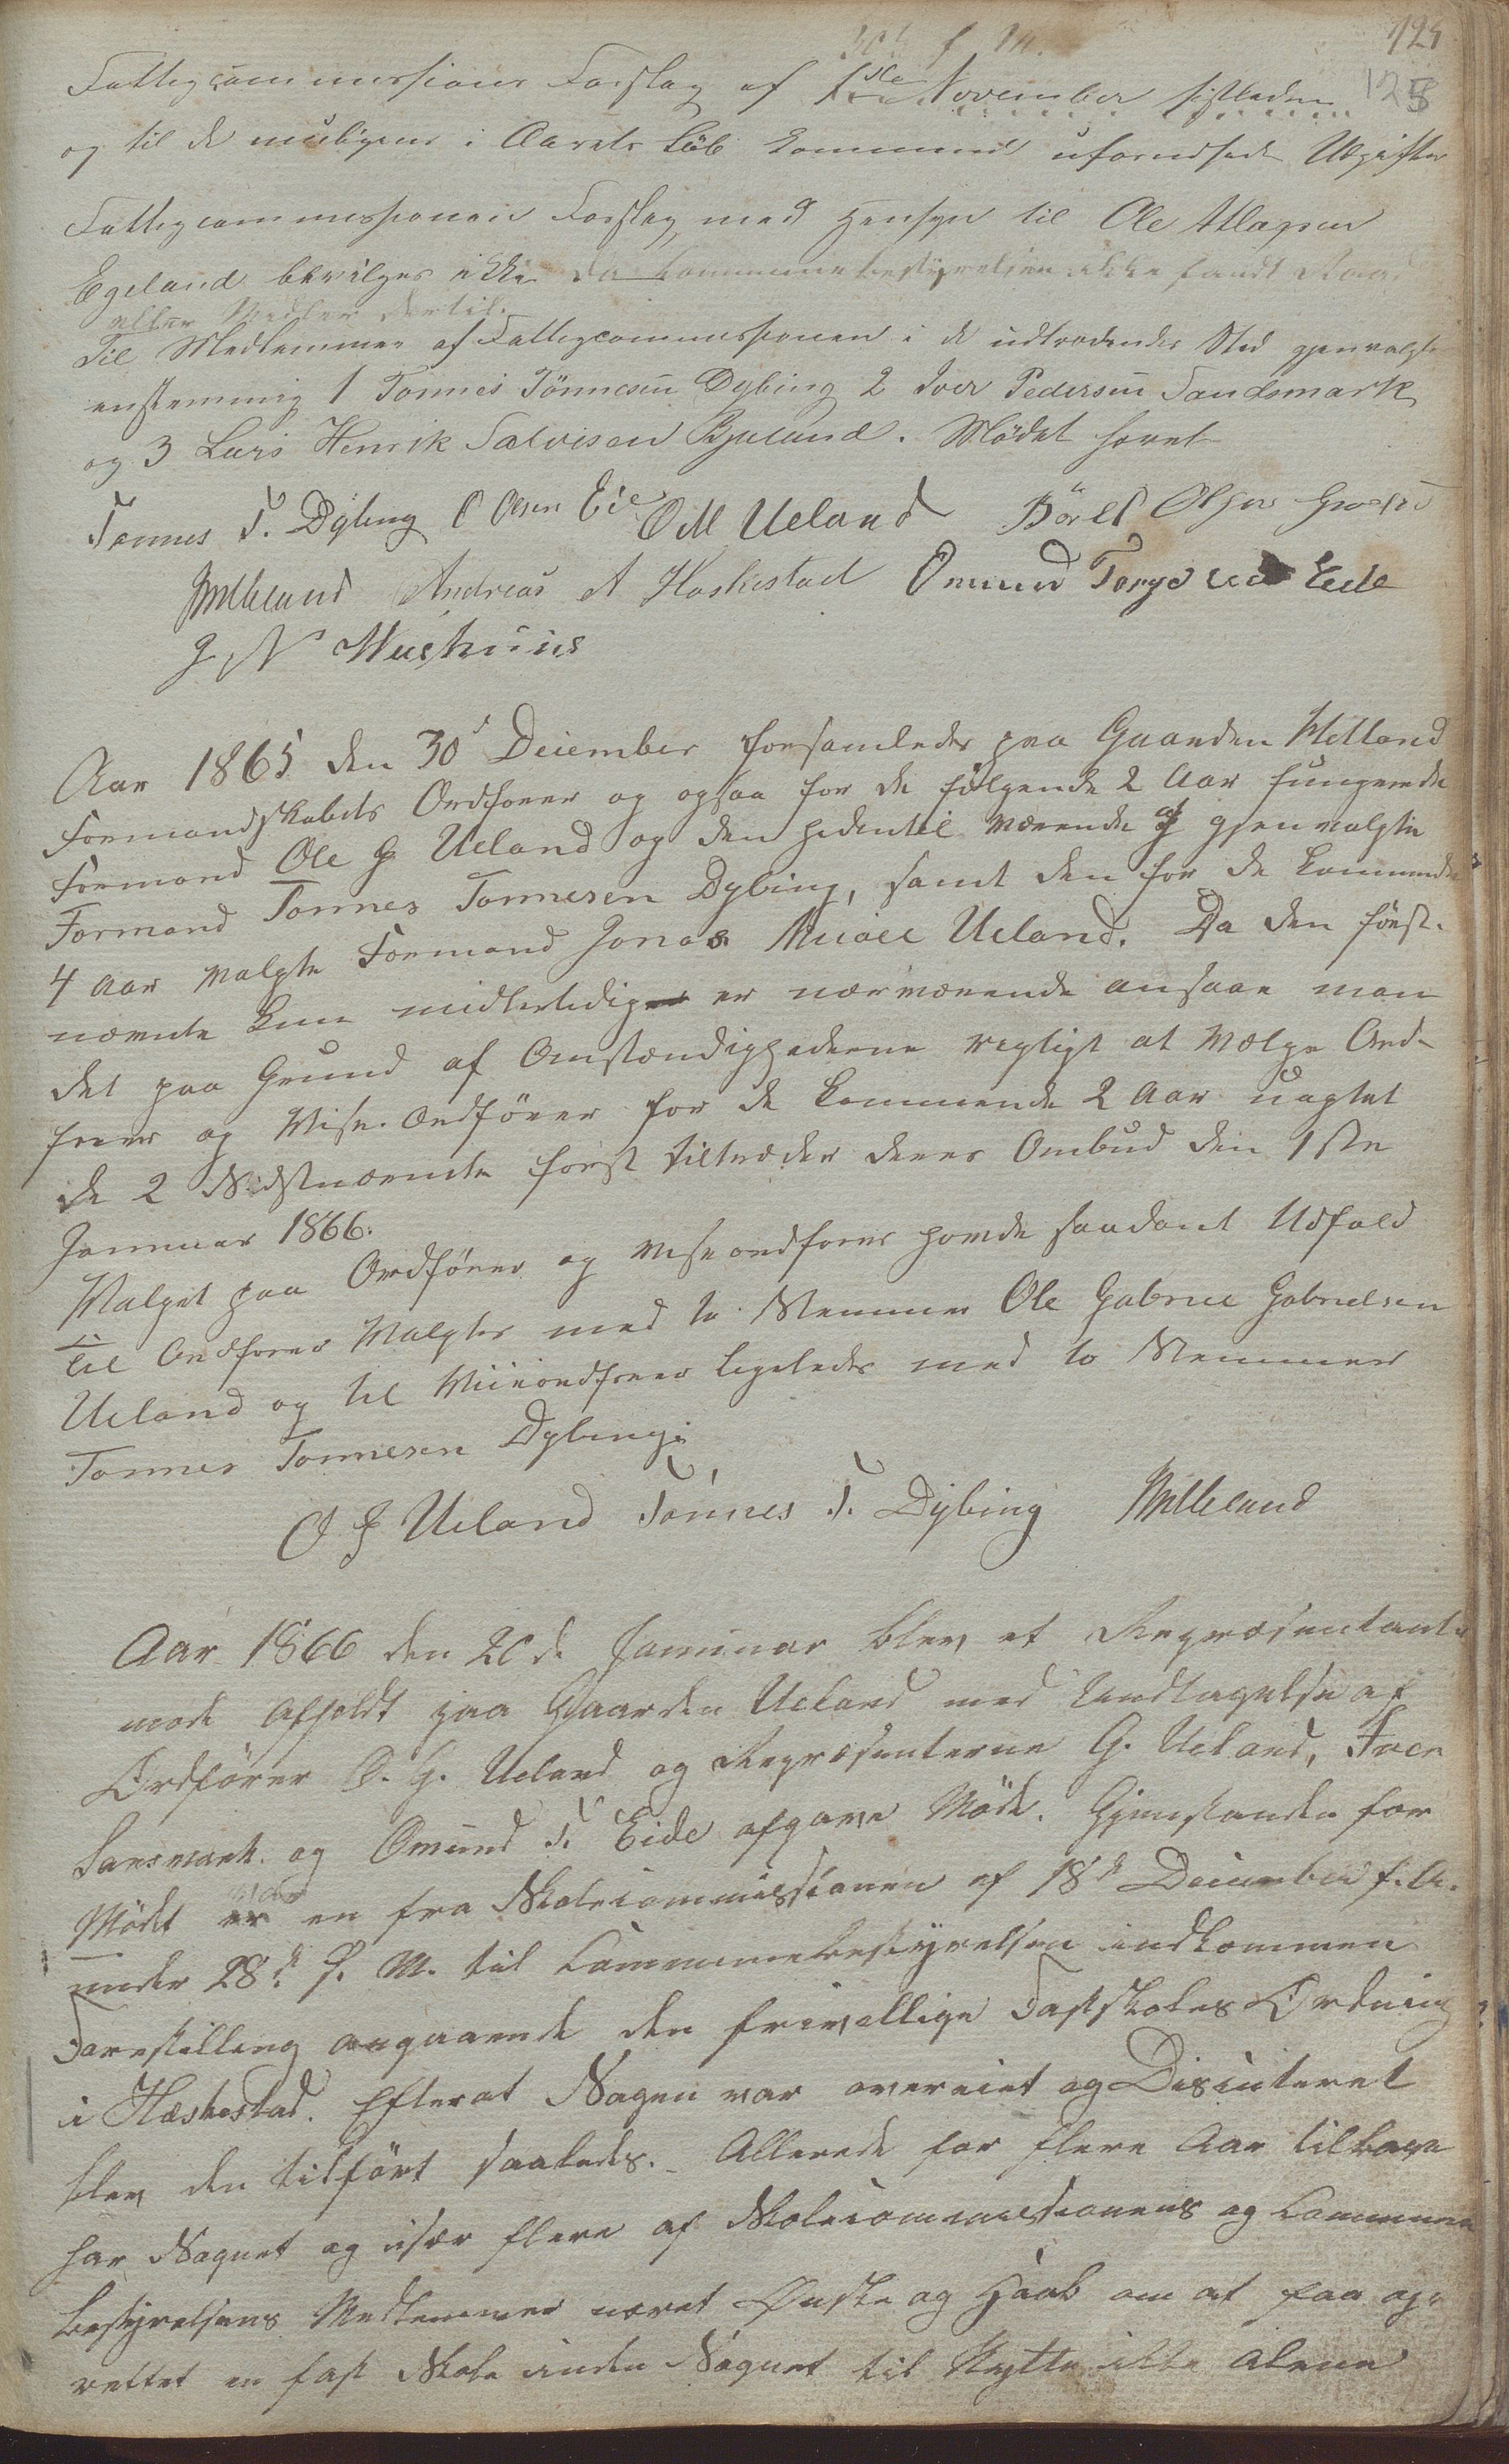 124
125
Fattigcommissions Forslag af 1ste November sistleden
og til de muligens i Aarets Løb kommende uforudsete Udgifter
Fattigcommissionens Forslag med Hensyn til Ole Atlagsen
Egeland bevilges ikke da Kommunebestyrelsen ikke fandt Raad
eller Midler dertil.
Til Medlemmer af Fattigcommissionen i de udtrædendes Sted gjenvalgtes
enstemmig 1 Tønnes Tönnesen Dybing 2 Iver Pedersen Sandsmark
og 3 Lars Henrik Salvesen Bjuland. Mödet hævet
Tønnes T. Dÿbing O Olsen Eie O M Ueland Börel Olsen
Andreas A Haskestad Omund Torgersen Eide
J N
Aar 1865 den 30 December forsamledes paa Gaarden Metland
Formandskabets Ordfører og ogsaa for de følgende 2 Aar fungerende
Formand Ole G Ueland og den hedentil værende og gjenvalgte
Formand Tønnes Tonnesen Dybing, samt den for de kommende
4 Aar valgte Formand Jonas Micael Ueland. Da den først-
nævnte kun midlertidig er nærværende ansaae man
det paa Grund af Omstændighederne rigtigt at vælge Ord-
fører og Vise-Ordfører for de kommende 2 Aar uagtet
de 2 Sidstnævnte først tiltræder deres Ombud den 1ste
Januar 1866.
Valget paa Ordfører og Viseordfører havde saadant Udfald
til Ordfører valgtes med to Stemmer Ole Gabriel Gabrielsen
Ueland og til Viceordfører ligeledes med to Stemmer
Tønnes Tonnesen Dybing
O G Ueland Tönnes T. Dÿbing
Aar 1866 den 20de Januar blev et Repræsentant-
møde afholdt paa Gaarden Ueland med Undtagelse af
Ordfører O. G. Ueland og Repræsenterne G. Ueland, Iver
Sansmark og Omund T. Eide afgave Möde. Gjenstanden for
Mödet var er en fra Skolecommissionen af 18de December f. A.
under 28de s. M. til Communebestyrelsen indkommen
Forestilling angaaende den frivillige Fastskoles Ordning
i Heskestad. Efterat Sagen var overveiet og Discuteret
blev den tilført saaledes. Allerede for flere Aar tilbage
har Sognet og især flere af Skolecommissionens og Commune
bestyrelsens Medlemmer næret Ønske og Haab om at faa op-
rettet en fast Skole inden Sognet til Nytte ikke alene